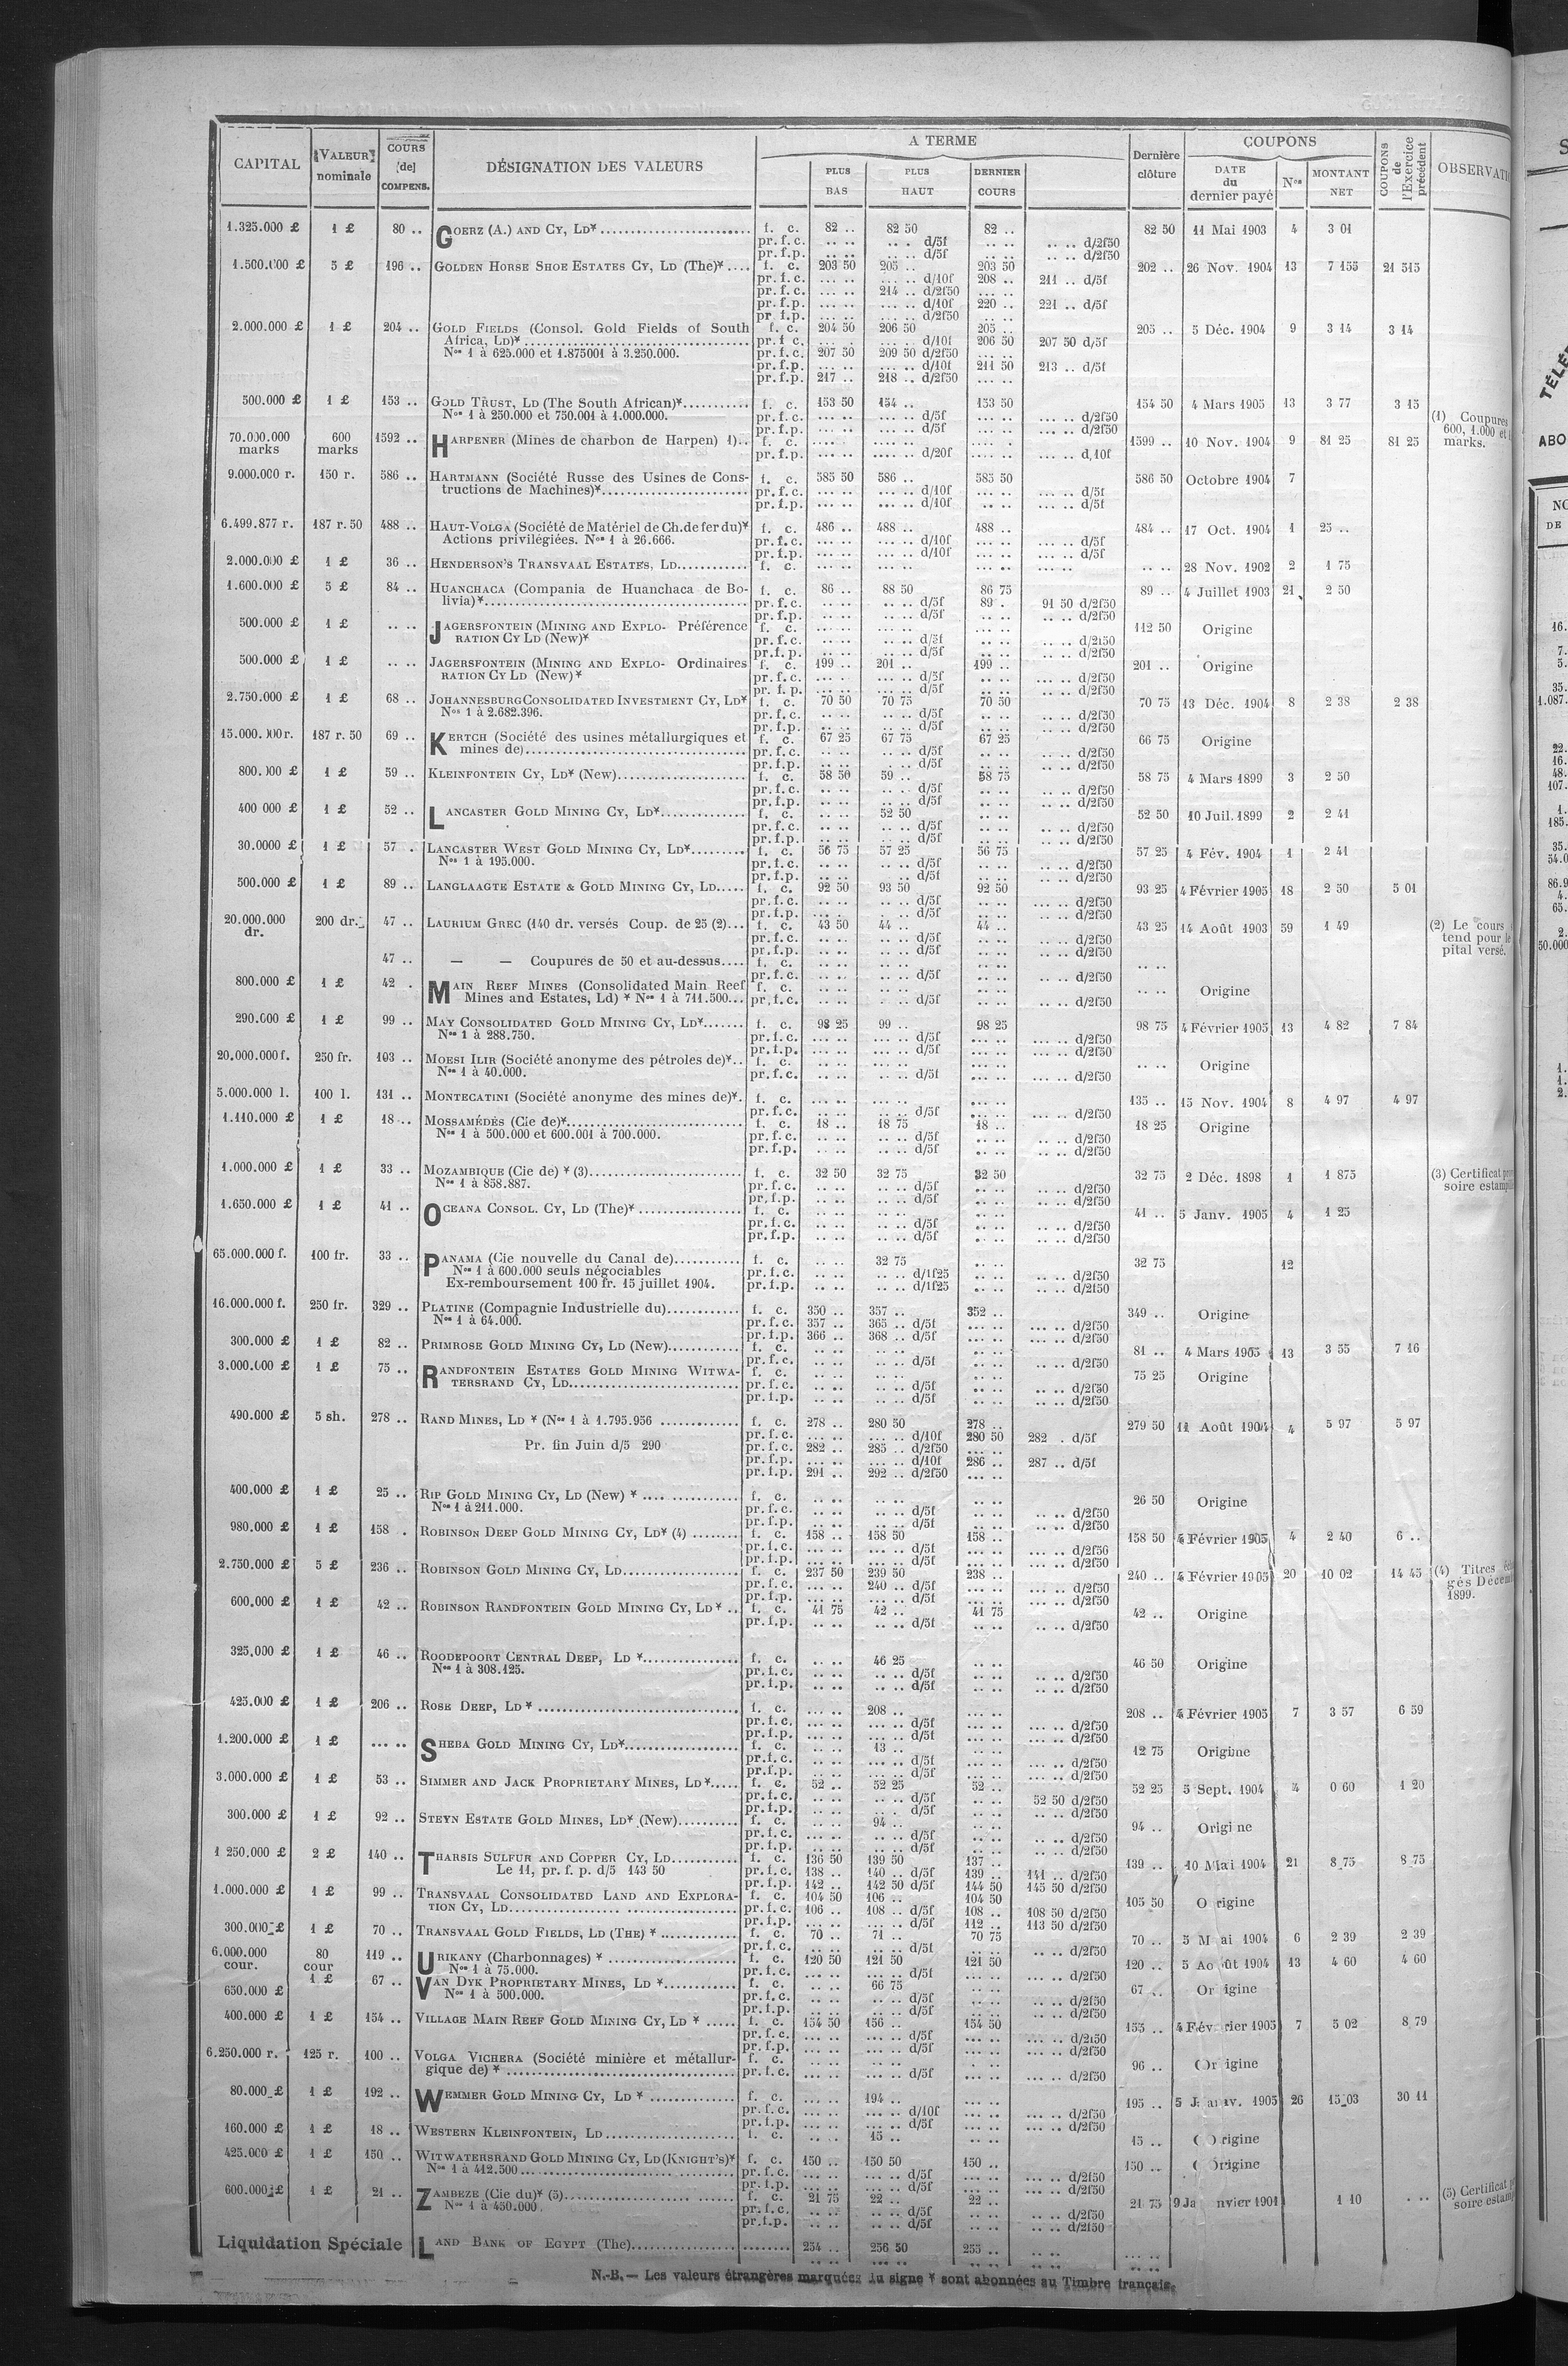 CAPITAL VALEUR nominale COURS [de] COMPENS. DÉSIGNATION DES VALEURS A TERME PLUS BAS PLUS HAUT DERNIER COURS Dernière clôture COUPONS DATE du dernier payé Nos MONTANT NET COUPONS de l'Exercice précédent
1.325.000 £ 1 £ 80 .. GOERZ (A.) AND CY, LD* f. c. 82 .. 82 50 82 .. 82 50 11 Mai 1903 4 3 01
pr. f. c. .. .. .. . d/5f .. .. .. .. d/2f50
pr. f.p. .. .. .. .. d/5f .. .. .. .. d/2f50
1.500.000 £ 5 £ 196 .. GOLDEN HORSE SHOE ESTATES CY, LD (The)* f. c. 203 50 205 .. 203 50 202 .. 26 Nov. 1904 13 7 155 21 515
pr. f.c. ... .. ... .. d/10f 208 .. 211 .. d/5f
pr. f.c. ... .. 214 .. d/2f50 ... ..
pr. f.p. ... .. ... .. d/10f 220 .. 221 .. d/5f
pr f.p. ... .. ... .. d/2f50 ... ..
2.000.000 £ 1 £ 204 .. GOLD FIELDS (Consol. Gold Fields of South f. c. 204 50 206 50 205 .. 205 .. 5 Déc. 1904 9 3 14 3 14
Africa, Ld)* pr. f c. ... . ... .. d/10f 206 50 207 50 d/5f
Nos 1 à 625.000 et 1.875001 à 3.250.000. pr. f.c. 207 50 209 50 d/2f50 ... ..
pr. f.p. ... .. ... .. d/10f 211 50 213 .. d/5f
pr. f.p. 217 .. 218 .. d/2f50 ... ..
500.000 £ 1 £ 153 .. GOLD TRUST, LD (The South African)* f. c. 153 50 154 .. 153 50 154 50 4 Mars 1905 13 3 77 3 15
Nos 1 à 250.000 et 750.001 à 1.000.000. pr. f.c. ... .. ... .. d/5f ... .. ... .. d/2f50
pr. f.p. ... .. ... .. d/5f ... .. ... .. d/2f50
(1) Coupures
600, 1.000 et
marks.
70.000.000 marks 600 marks 1592 .. HARPENER (Mines de charbon de Harpen) 1).. f. c. 1599 .. 10 Nov. 1904 9 81 25 81 25
pr. f.p. .... .. .... .. d/20f .... .. .... .. d,10f
9.000.000 r. 150 r. 586 .. HARTMANN (Société Russe des Usines de Cons- f. c. 585 50 586 .. 585 50 586 50 Octobre 1904 7
tructions de Machines)* pr. f.c. ... .. ... .. d/10f ... .. ... .. d/5f
pr. f.p. ... .. ... .. d/10f ... .. ... .. d/5f
6.499.877 r. 187 r. 50 488 .. HAUT-VOLGA (Société de Matériel de Ch.de fer du)* f. c. 486 .. 488 .. 488 .. 484 .. 17 Oct. 1904 1 25 ..
Actions privilégiées. Nos 1 à 26.666. pr. f.c. ... .. ... .. d/10f ... .. ... .. d/5f
pr. f.p. ... .. ... .. d/10f ... .. ... .. d/5f
2.000.000 £ 1 £ 36 .. HENDERSON'S TRANSVAAL ESTATES, LD f. c. .. .. 28 Nov. 1902 2 1 75
1.600.000 £ 5 £ 84 .. HUANCHACA (Compania de Huanchaca de Bo- f. c. 86 .. 88 50 86 75 89 .. 4 Juillet 1903 21 2 50
livia)* pr. f.c. .. .. .. .. d/5f 89 . 91 50 d/2f50
pr. f.p. .. .. .. .. d/5f .. .. .. .. d/2f50
500.000 £ 1 £ .. .. JAGERSFONTEIN (MINING AND EXPLO- Préférence f. c. 112 50 Origine
RATION CY LD (New)* pr. f.c. .. .. .. .. d/5f .. .. .. .. d/2f50
pr.f.p. .. .. .. .. d/5f .. .. .. .. d/2f50
500.000 £ 1 £ .. .. JAGERSFONTEIN (MINING AND EXPLO- Ordinaires f. c. 199 .. 201 .. 199 .. 201 .. Origine
RATION CY LD (New)* pr. f.c. ... .. .. .. d/5f .. .. .. .. d/2f50
pr. f. p. .. .. .. .. d/5f .. .. .. .. d/2f50
2.750.000 £ 1 £ 68 .. JOHANNESBURG CONSOLIDATED INVESTMENT CY, LD* f. c. 70 50 70 75 70 50 70 75 13 Déc. 1904 8 2 38 2 38
Nos 1 à 2.682.396. pr. f.c. .. .. .. .. d/5f .. .. .. .. d/2f50
pr. f.p. .. .. .. .. d/5f .. .. .. .. d/2f50
15.000.000 r. 187 r. 50 69 .. KERTCH (Société des usines métallurgiques et f. c. 67 25 67 75 67 25 66 75 Origine
mines de) pr. f.c. .. .. .. .. d/5f .. .. .. .. d/2f50
pr. f.p. .. .. .. .. d/5f .. .. .. .. d/2f50
800.000 £ 1 £ 59 .. KLEINFONTEIN CY, LD* (New) f. c. 58 50 59 .. 58 75 58 75 4 Mars 1899 3 2 50
pr. f.c. .. .. .. .. d/5f .. .. .. .. d/2f50
pr. f.p. .. .. .. .. d/5f .. .. .. .. d/2f50
400 000 £ 1 £ 52 .. LANCASTER GOLD MINING CY, LD* f. c. .. .. 52 50 52 50 10 Juil. 1899 2 2 41
pr. f. c. .. .. .. .. d/5f .. .. .. .. d/2f50
pr. f.p. .. .. .. .. d/5f .. .. .. .. d/2f50
30.0000 £ 1 £ 57 . LANCASTER WEST GOLD MINING CY, LD* f. c. 56 75 57 25 56 75 57 25 4 Fév. 1904 1 2 41
Nos 1 à 195.000. pr. f.c. .. .. .. .. d/5f .. .. .. .. d/2f50
pr. f.p. .. .. .. .. d/5f
500.000 £ 1 £ 89 .. LANGLAAGTE ESTATE & GOLD MINING CY, LD f. c. 92 50 93 50 92 50 93 25 4 Février 1905 18 2 50 5 01
pr. f.c. .. .. .. .. d/5f .. .. ... .. d/2f50
pr. f.p. .. .. . .. d/5f .. .. .. .. d/2f50
20.000.000 dr. 200 dr. 47 .. LAURIUM GREC (140 dr. versés Coup. de 25 (2) f. c. 43 50 44 .. 44 .. 43 25 14 Août 1903 59 1 49
pr. f.c. .. .. .. .. d/5f .. .. .. .. d/2f50
pr. f.p. .. .. .. .. d/5f .. .. .. .. d/2f50
(2) Le cours
tend pour le
pital versé.
47 .. — — Coupures de 50 et au-dessus f. c. .. ..
pr. f.c. .. .. .. .. d/5f .. .. .. .. d/2f50
800.000 £ 1 £ 42 . MAIN REEF MINES (Consolidated Main Reef f. c. .. .. Origine
Mines and Estates, Ld) * Nos 1 à 711.500 pr. f.c. .. .. .. .. d/5f .. .. .. .. d/2f50
290.000 £ 1 £ 99 .. MAY CONSOLIDATED GOLD MINING CY, LD* f. c. 98 25 99 .. 98 25 98 75 4 Février 1905 13 4 82 7 84
Nos 1 à 288.750. pr. f.c. ... .. ... .. d/5f ... .. ... .. d/2f50
pr. f.p. ... .. ... .. d/5f ... .. ... .. d/2f50
20.000.000 f. 250 fr. 103 .. MOESI ILIR (Société anonyme des pétroles de)* f. c. .. .. Origine
Nos 1 à 40.000. pr. f.c. ... .. .. .. d/5f ... .. ... .. d/2f50
5.000.000 l. 100 l. 131 .. MONTECATINI (Société anonyme des mines de)* f. c. 135 .. 15 Nov. 1904 8 4 97 4 97
pr. f.c. .. .. ... .. d/5f ... .. ... .. d/2f50
1.110.000 £ 1 £ 18 .. MOSSAMÉDÈS (Cie de)* f. c. 18 .. 18 75 18 .. 18 25 Origine
Nos 1 à 500.000 et 600.001 à 700.000. pr. f.c. .. .. .. .. d/5f .. .. .. .. d/2f50
pr. f.p. .. .. .. .. d/5f .. .. .. .. d/2f50
1.000.000 £ 1 £ 33 .. MOZAMBIQUE (Cie de) * (3) f. c. 32 50 32 75 32 50 32 75 2 Déc. 1898 1 1 875
Nos 1 à 858.887. pr. f.c. .. .. .. .. d/5f .. .. .. .. d/2f50
pr. f.p. .. .. .. .. d/5f .. .. .. .. d/2f50
(3) Certificat
soire
1.650.000 £ 1 £ 41 .. OCEANA CONSOL. CY, LD (The)* f. c. 41 .. 5 Janv. 1905 4 1 25
pr. f.c. .. .. .. .. d/5f .. .. .. .. d/2f50
pr. f.p. .. .. .. .. d/5f .. .. .. .. d/2f50
65.000.000 f. 100 fr. 33 .. PANAMA (Cie nouvelle du Canal de) f. c. .. .. 32 75 .. .. 32 75 12
Nos 1 à 600.000 seuls négociables pr. f.c. .. .. .. .. d/1f25 .. .. .. .. d/2f50
Ex-remboursement 100 fr. 15 juillet 1904. pr. f.p. .. .. .. .. d/1f25 .. .. .. .. d/2f50
16.000.000 f. 250 fr. 329 .. PLATINE (Compagnie Industrielle du) f. c. 350 .. 357 .. 352 .. 349 .. Origine
Nos 1 à 64.000. pr. f.c. 357 .. 365 .. d/5f ... .. ... .. d/2f50
pr. f.p. 366 .. 368 .. d/5f ... .. ... .. d/2f50
300.000 £ 1 £ 82 .. PRIMROSE GOLD MINING CY, LD (New) f. c. 81 .. 4 Mars 1905 13 3 55 7 16
pr. f.c. .. .. .. .. d/5f .. .. .. .. d/2f50
3.000.000 £ 1 £ 75 .. RANDFONTEIN ESTATES GOLD MINING WITWA- f. c. 75 25 Origine
TERSRAND CY, LD pr. f.c. .. .. .. .. d/5f .. .. .. .. d/2f50
pr. f.p. .. .. .. .. d/5f .. .. .. .. d/2f50
490.000 £ 5 sh. 278 .. RAND MINES, LD * (Nos 1 à 1.795.956 f. c. 278 .. 280 50 278 .. 279 50 11 Août 1904 4 5 97 5 97
pr. f.c. ... .. ... .. d/10f 280 50 282 . d/5f
Pr. fin Juin d/5 290 pr. f.c. 282 .. 285 .. d/2f50 ... ..
pr. f.p. ... .. ... .. d/10f 286 .. 287 .. d/5f
pr. f.p. 291 .. 292 .. d/2f50 ... ..
400.000 £ 1 £ 25 .. RIP GOLD MINING CY, LD (New) * f. c. 26 50 Origine
Nos 1 à 211.000. pr. f.c. .. .. .. .. d/5f .. .. .. .. d/2f50
pr. f.p. .. .. .. .. d/5f .. .. .. .. d/2f50
980.000 £ 1 £ 158 . ROBINSON DEEP GOLD MINING CY, LD* (4) f. c. 158 .. 158 50 158 .. 158 50 4 Février 1905 4 2 40 6 ..
pr. f.c. ... .. ... .. d/5f ... .. ... .. d/2f50
pr. f.p. ... .. ... .. d/5f ... .. ... .. d/2f50
2.750.000 £ 5 £ 236 .. ROBINSON GOLD MINING CY, LD f. c. 237 50 239 50 238 .. 240 .. 4 Février 1905 20 10 02 14 45
pr. f.c. ... .. 240 .. d/5f ... .. ... .. d/2f50
pr. f.p. ... .. ... .. d/5f ... .. ... .. d/2f50
(4) Titres
gés Décem
1899.
600.000 £ 1 £ 42 .. ROBINSON RANDFONTEIN GOLD MINING CY, LD * f. c. 41 75 42 .. 41 75 42 .. Origine
pr. f.p. .. .. .. .. d/5f .. .. .. .. d/2f50
325.000 £ 1 £ 46 .. ROODEPOORT CENTRAL DEEP, LD * f. c. .. .. 46 25 .. .. 46 50 Origine
Nos 1 à 308.125. pr. f.c. .. .. .. .. d/5f .. .. .. .. d/2f50
pr. f.p. .. .. .. .. d/5f .. .. .. .. d/2f50
425.000 £ 1 £ 206 .. ROSE DEEP, LD * f. c. ... .. 208 .. ... .. 208 .. 4 Février 1905 7 3 57 6 59
pr. f.c. ... .. ... .. d/5f ... .. ... .. d/2f50
pr. f.p. ... .. ... .. d/5f ... .. ... .. d/2f50
1.200.000 £ 1 £ ... .. SHEBA GOLD MINING CY, LD* f. c. .. .. 13 .. .. .. 12 75 Origine
pr.f.c. .. .. .. .. d/5f .. .. .. .. d/2f50
pr.f.p. .. .. .. .. d/5f .. .. .. .. d/2f50
3.000.000 £ 1 £ 53 .. SIMMER AND JACK PROPRIETARY MINES, LD * f. c. 52 .. 52 25 52 .. 52 25 5 Sept. 1904 4 0 60 1 20
pr. f.c. .. .. .. .. d/5f .. .. 52 50 d/2f50
pr. f.p. .. .. .. . d/5f .. .. .. .. d/2f50
300.000 £ 1 £ 92 .. STEYN ESTATE GOLD MINES, LD* (New) f. c. .. .. 94 .. .. .. 94 .. Origine
pr. f.c. .. .. .. .. d/5f .. .. .. .. d/2f50
pr. f.p. .. .. .. .. d/5f .. .. .. .. d/2f50
1 250.000 £ 2 £ 140 .. THARSIS SULFUR AND COPPER CY, LD f. c. 136 50 139 50 137 .. 139 .. 10 Mai 1904 21 8 75 8 75
Le 11, pr. f. p. d/5 143 50 pr. f.c. 138 .. 140 .. d/5f 139 .. 141 .. d/2f50
pr. f.p. 142 .. 142 50 d/5f 144 50 145 50 d/2f50
1.000.000 £ 1 £ 99 .. TRANSVAAL CONSOLIDATED LAND AND EXPLORA- f. c. 104 50 106 .. 104 50 105 50 Origine
TION CY, LD pr. f.c. 106 .. 108 .. d/5f 108 .. 108 50 d/2f50
pr. f.p. ... .. ... .. d/5f 112 .. 113 50 d/2f50
300.000 £ 1 £ 70 .. TRANSVAAL GOLD FIELDS, LD (THE) * f. c. 70 .. 71 .. 70 75 70 .. 5 Mai 1904 6 2 39 2 39
pr. f.c. .. .. .. .. d/5f .. .. .. .. d/2f50
6.000.000 cour. 80 cour 119 .. URIKANY (Charbonnages) * f. c. 120 50 121 50 121 50 120 .. 5 Août 1904 13 4 60 4 60
Nos 1 à 75.000. pr. f.c. ... .. ... .. d/5f ... .. ... .. d/2f50
650.000 £ 1 £ 67 .. VAN DYK PROPRIETARY MINES, LD * f. c. .. .. 66 75 67 .. Origine
Nos 1 à 500.000. pr. f.c. .. .. .. .. d/5f .. .. .. .. d/2f50
pr. f.p. .. .. .. .. d/5f .. .. .. .. d/2f50
400.000 £ 1 £ 154 .. VILLAGE MAIN REEF GOLD MINING CY, LD * f. c. 154 50 156 .. 154 50 155 .. 4 Février 1905 7 5 02 8 79
pr. f.c. ... .. ... .. d/5f ... .. ... .. d/2f50
pr. f.p. ... .. ... .. d/5f ... .. ... .. d/2f50
6.250.000 r. 125 r. 100 .. VOLGA VICHERA (Société minière et métallur- f. c. 96 .. Origine
gique de) * pr. f.c. ... .. ... .. d/5f ... .. ... .. d/2f50
80.000 £ 1 £ 192 .. WEMMER GOLD MINING CY, LD * f. c. ... .. 194 .. 195 .. 5 Janv. 1905 26 15 03 30 11
pr. f.c. ... .. ... .. d/10f ... .. ... .. d/2f50
pr. f.p. ... .. ... .. d/5f ... .. ... .. d/2f50
160.000 £ 1 £ 18 .. WESTERN KLEINFONTEIN, LD f. c. .. .. 15 .. .. .. 15 .. Origine
425.000 £ 1 £ 150 .. WITWATERSRAND GOLD MINING CY, LD (KNIGHT'S)* f. c. 150 .. 150 50 150 .. 150 .. Origine
Nos 1 à 412.500 pr. f.c. ... .. ... .. d/5f ... .. ... .. d/2f50
pr. f.p. ... .. ... .. d/5f ... .. ... .. d/2f50
600.000 £ 1 £ 21 .. ZAMBEZE (Cie du)* (5) f. c. 21 75 22 .. 22 .. 21 75 9 Janvier 1901 1 10 . ..
Nos 1 à 450.000 pr. f.c. .. .. .. .. d/5f .. .. .. .. d/2f50
pr. f.p. .. .. .. .. d/5f .. .. .. .. d/2f50
(5) Certificat
soire
Liquidation Spéciale LAND BANK OF EGYPT (The) 254 .. 256 50 255 ..
N.-B. — Les valeurs étrangères marquées du signe * sont abonnées au Timbre français.